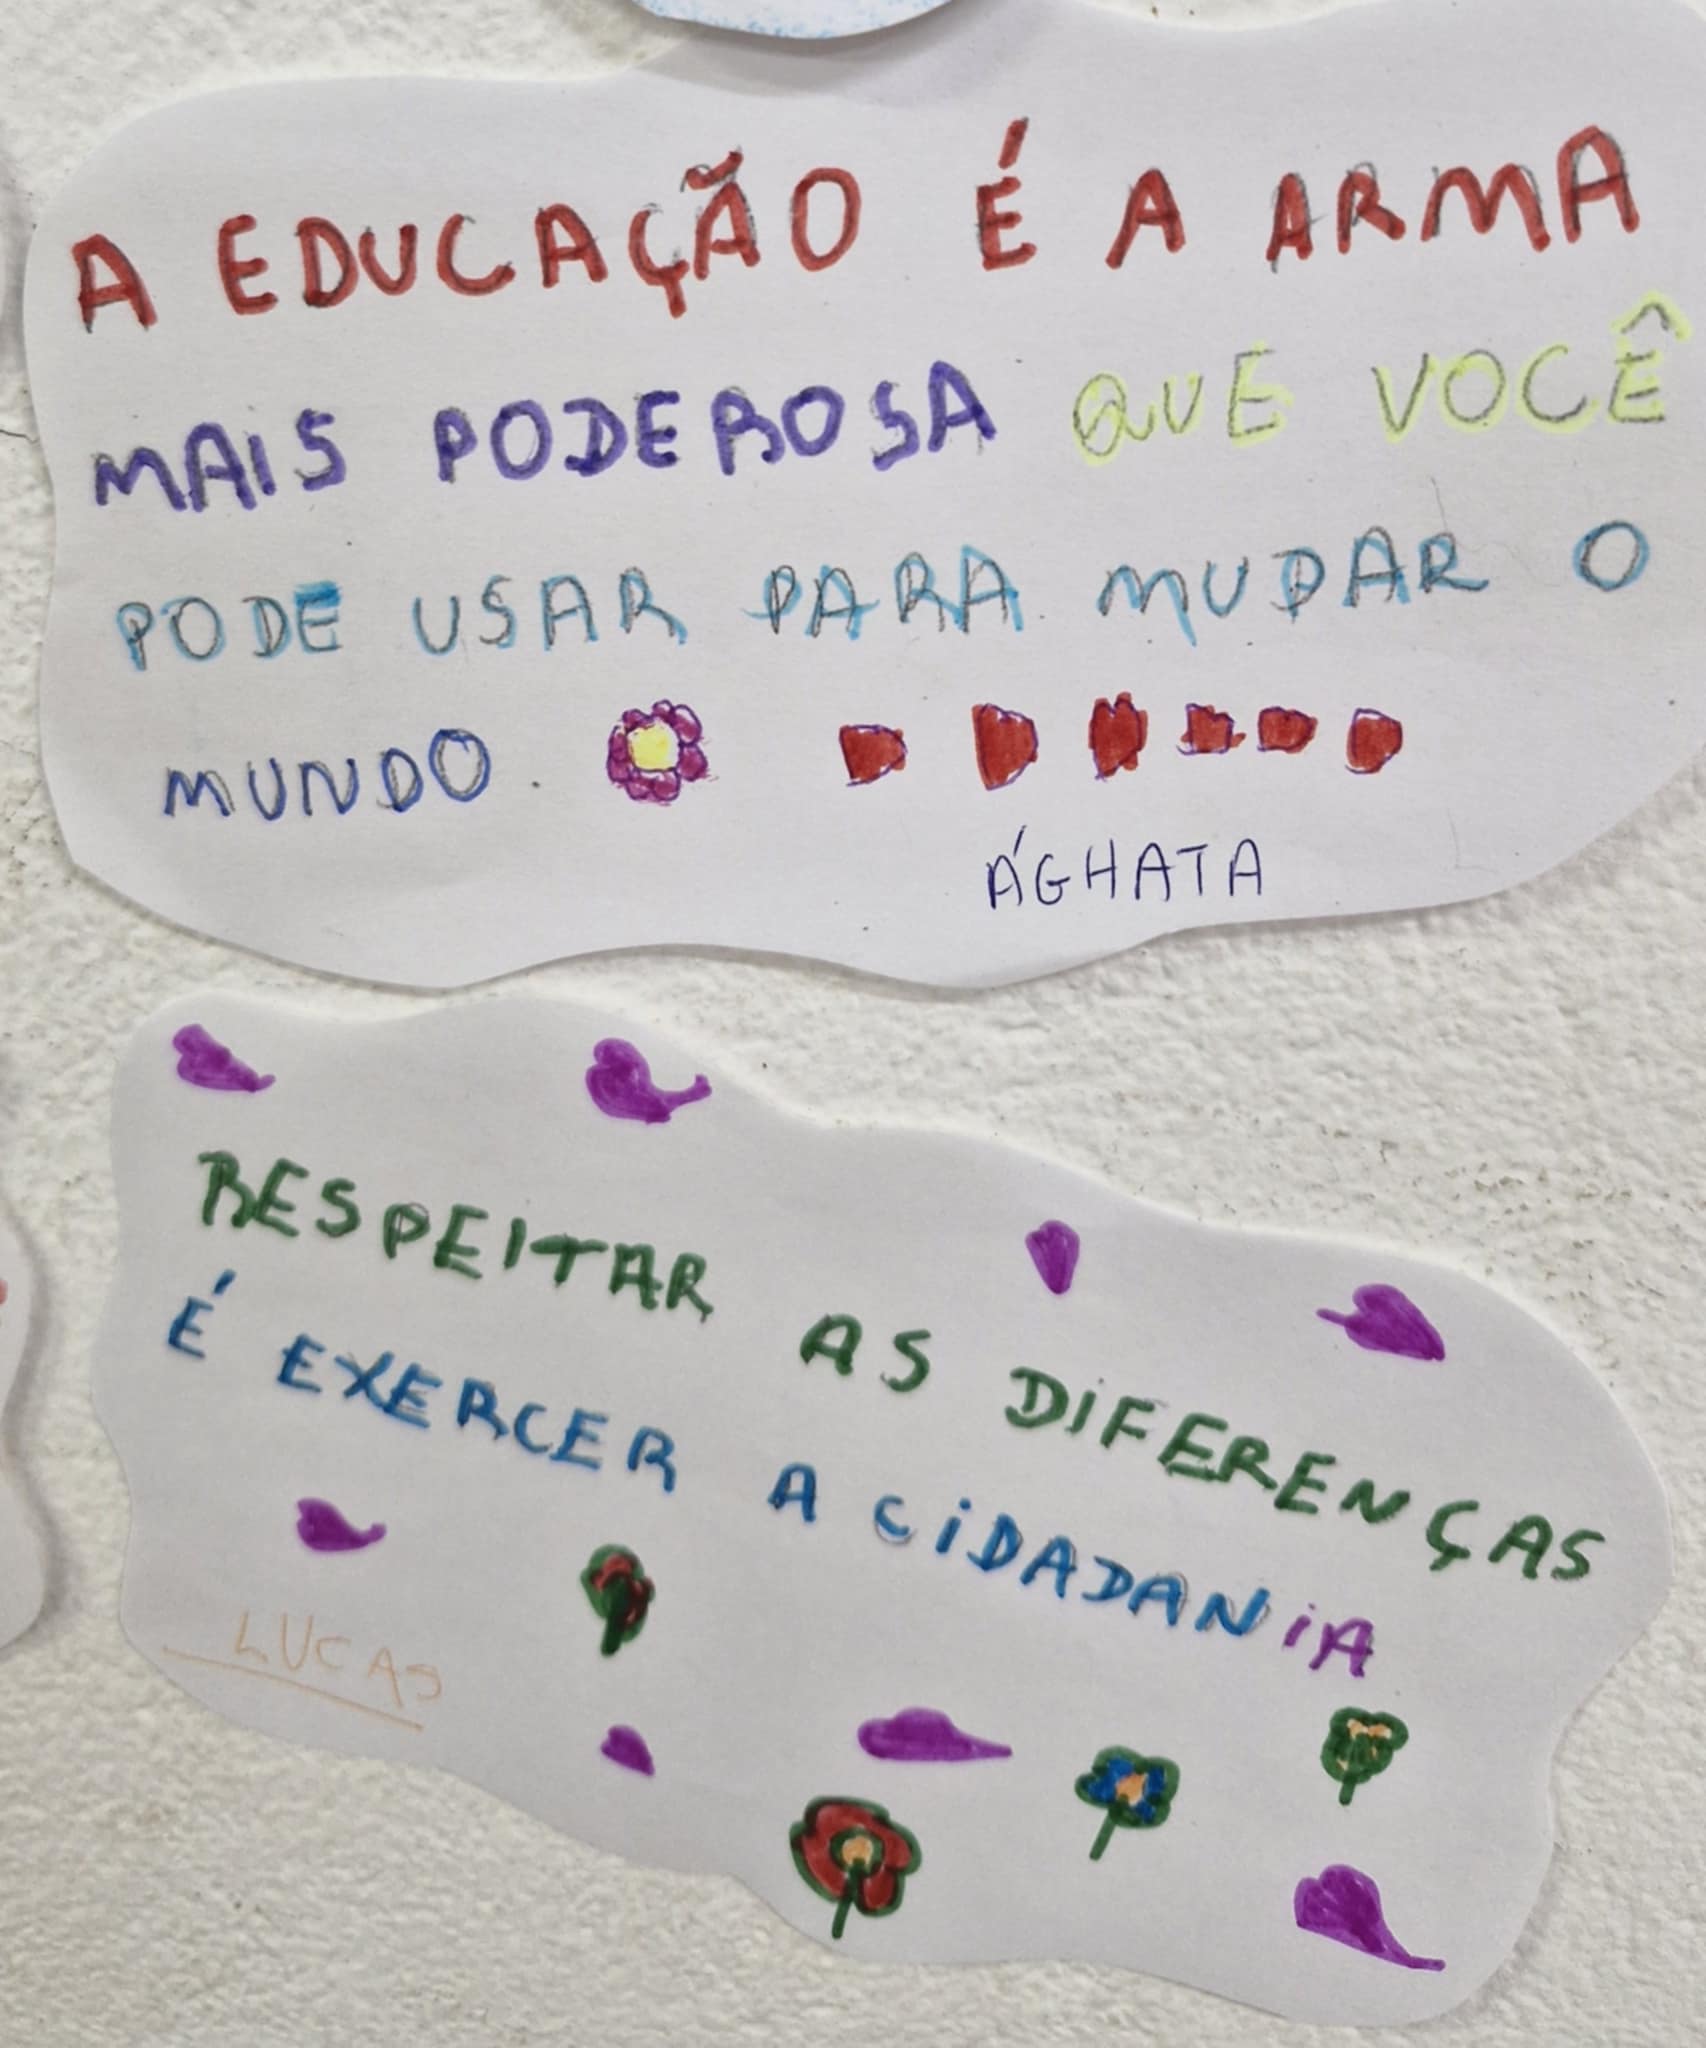 A EDUCAÇÃO É A ARMA
MAIS PODEROSA QUE VOCÊ
PODE USAR PARA MUDAR O
MUNDO.
ÁGHATA
RESPEITAR AS DIFERENÇAS
É EXERCER A CIDADANIA
LUCAS